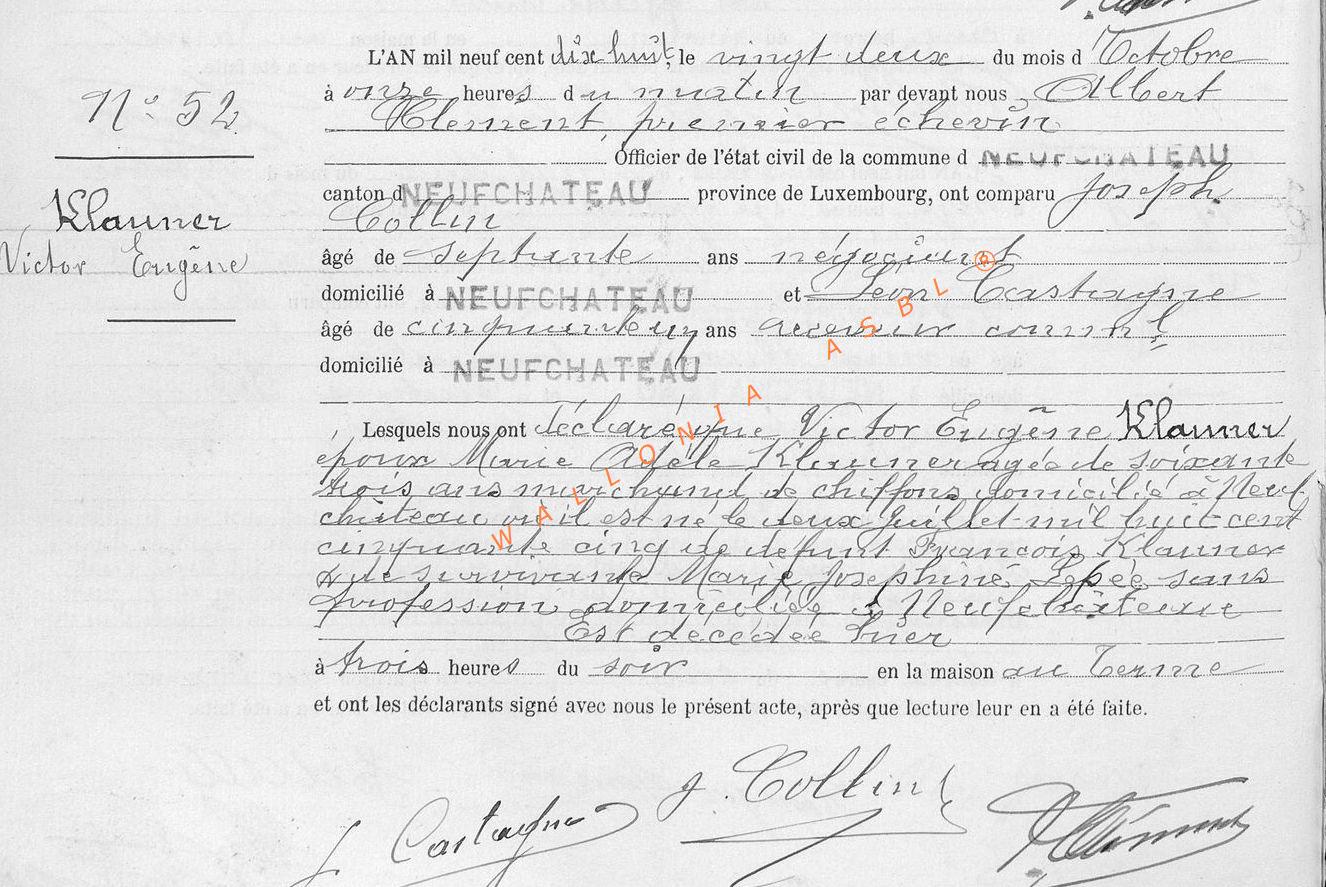 L'AN mil neuf cent dix huit, le vingt deux du mois d'Octobre
N° 52
à onze heures du matin par devant nous Albert
Clement, premier échevin
Officier de l'état civil de la commune d NEUFCHATEAU
canton d NEUFCHATEAU province de Luxembourg, ont comparu Joseph
Klauner
Collin
Victor Eugène
âgé de septante ans négociant
domicilié à NEUFCHATEAU et Léon Castagne
âgé de cinquante un ans receveur comm^l
domicilié à NEUFCHATEAU
Lesquels nous ont déclaré que Victor Eugène Klauner
époux Marie Adèle Klauner agée de soixante
trois ans marchand de chiffons domicilié à Neuf
château où il est né le deux Juillet mil huit cent
cinquante cinq de defunt François Klauner
& de survivante Marie Josephine Lepée sans
profession domiciliée à Neufchâteau
Est décédée hier
à trois heures du soir en la maison au Terme
et ont les déclarants signé avec nous le présent acte, après que lecture leur en a été faite.
J. Collin
Castagne
AClément
WALLONIA ASBL ®